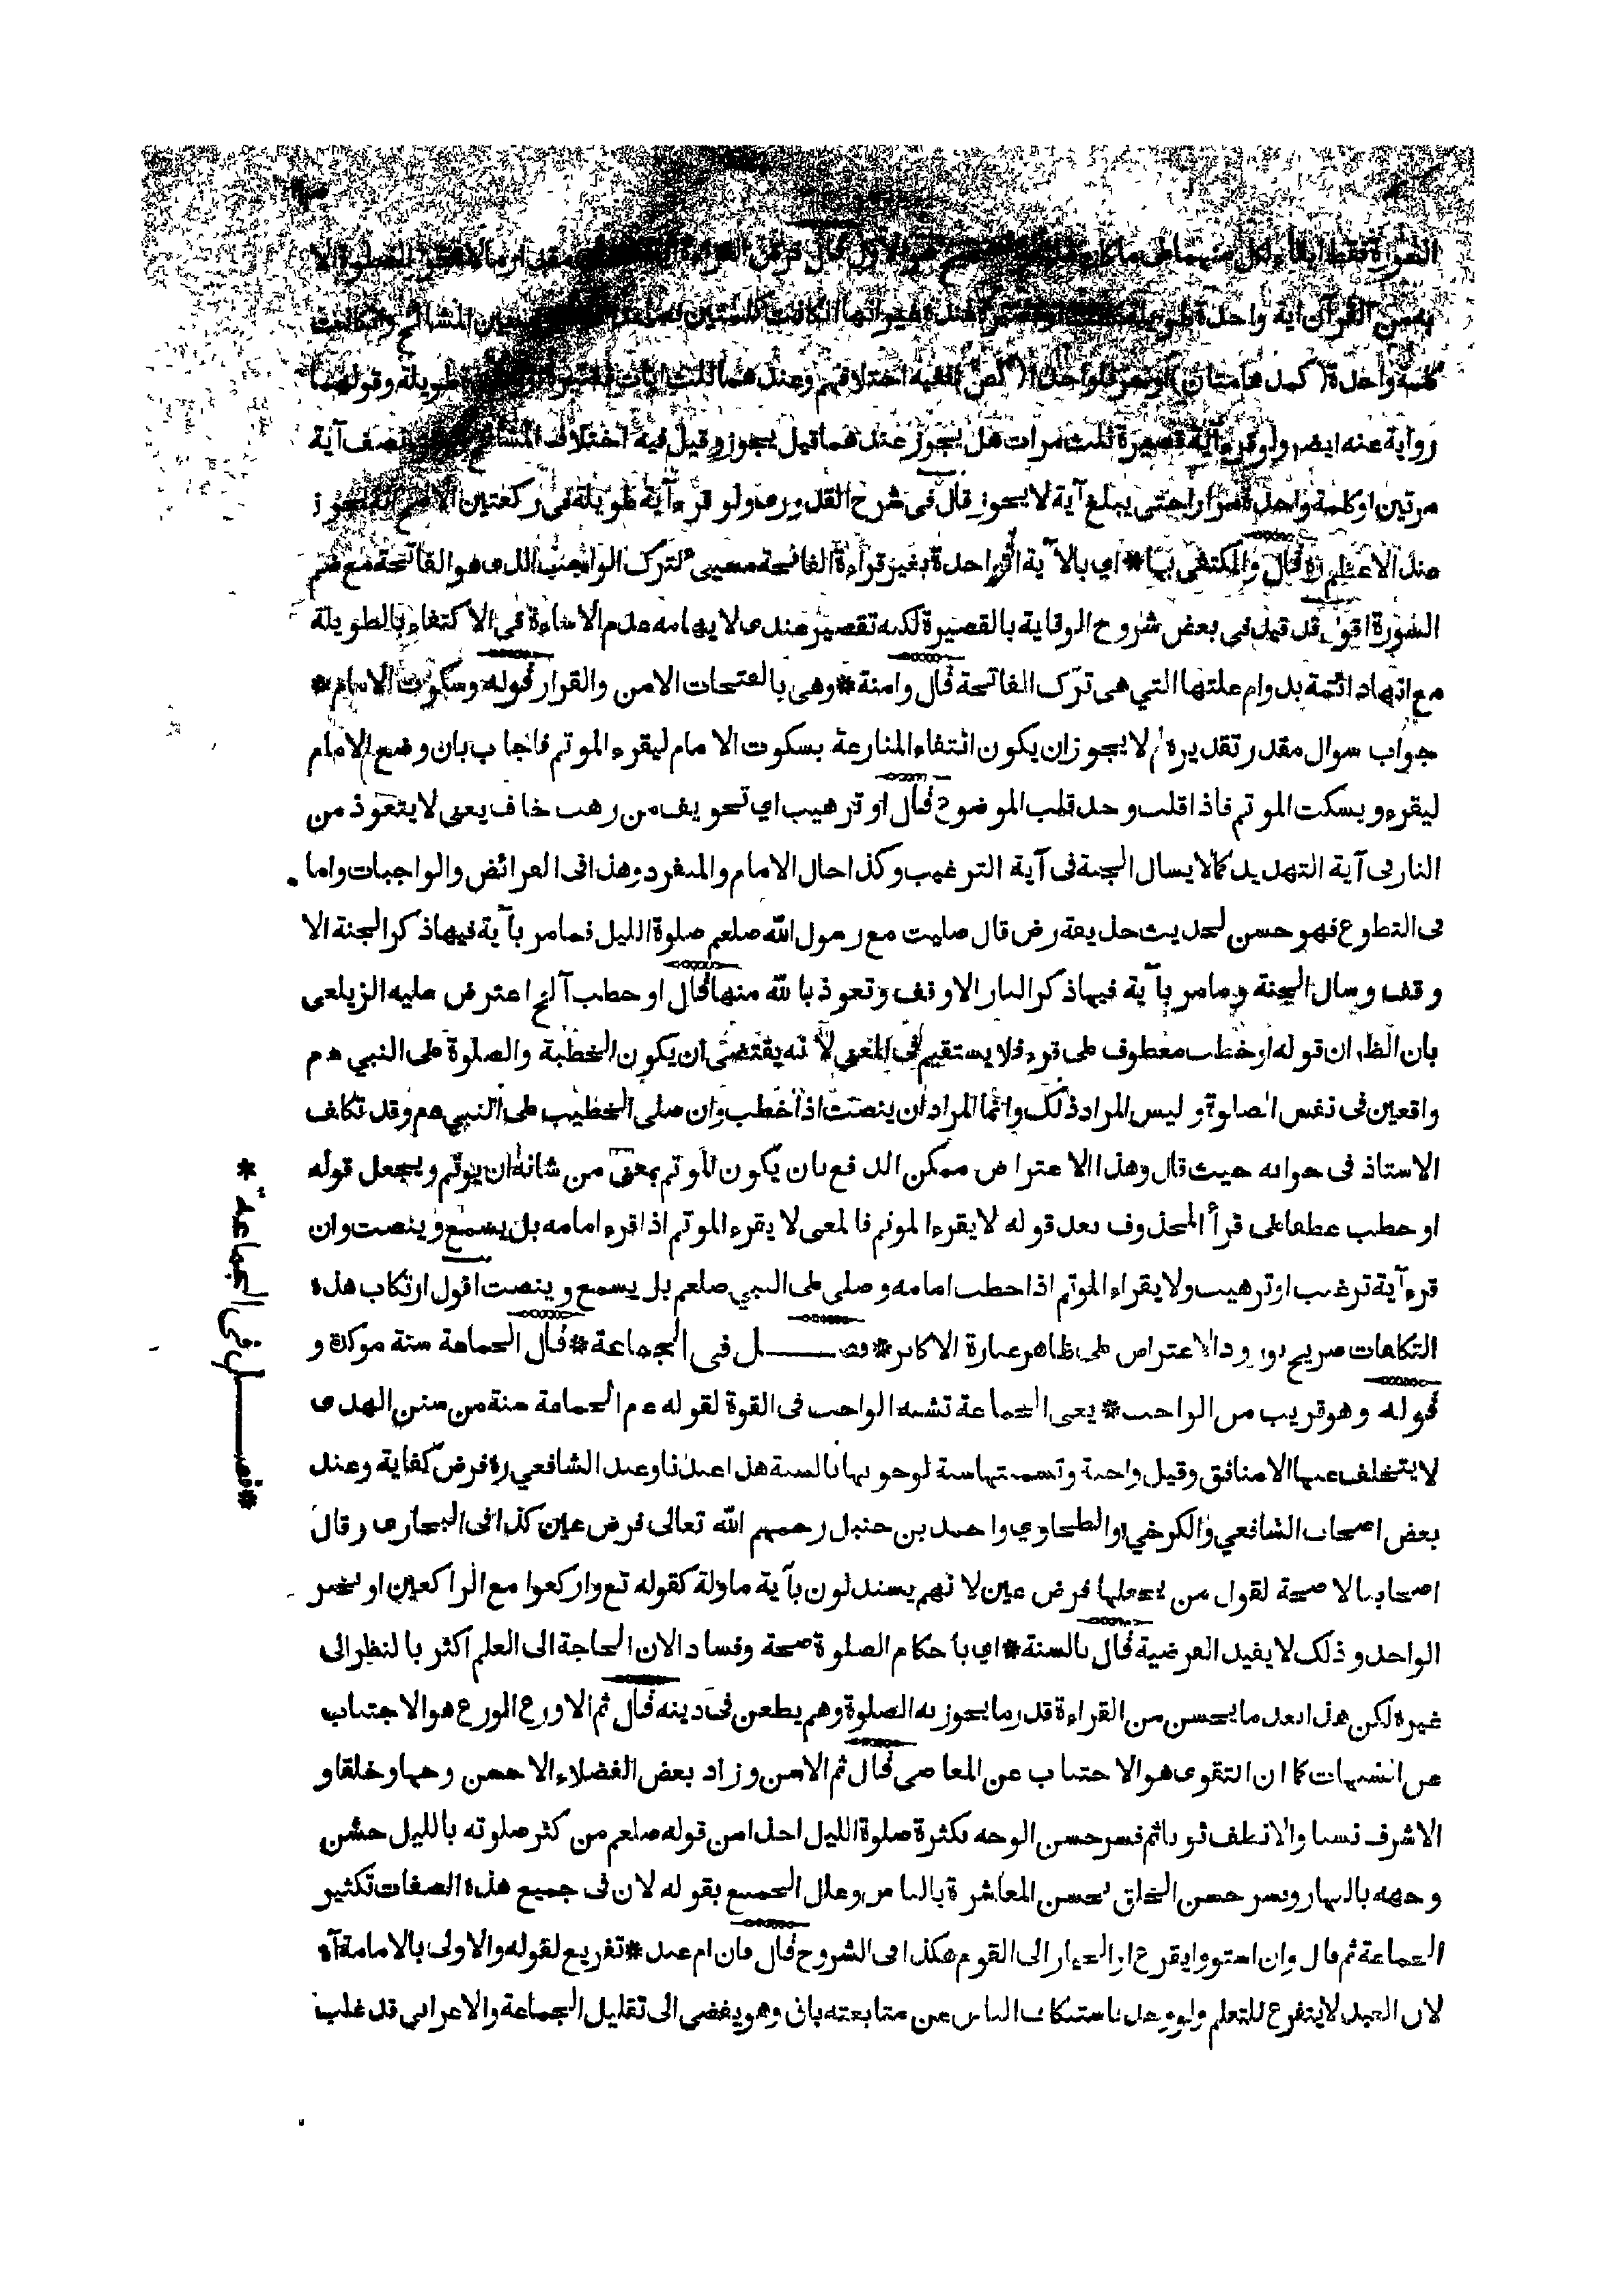 السورة فقط ابقاء لكل منهما على ما كان هو الاول قال فرض القراءة مقدار ما لا
به من القرآن آية واحدة طويلة كانت او قصيرة عنده غير انها ان كانت كلمتين بين المشائخ وان كانت
كلمة واحدة (كمدهامتان) او حرفا واحدا (كص) ففيه اختلافهم وعندهما ثلث آيات طويلة وقولهما
رواية عنه ايضا ولو قرء آية قصيرة ثلث مرات هل يجوز عندهما قيل يجوز وقيل فيه اختلاف نصف آية
مرتين او كلمة واحدة مرارا حتى يبلغ آية لا يجوز قال فى شرح القدوري ولو قرء آية طويلة فى ركعتين الاصح انه يجوز
عند الاعظم ره قال والمكتفى بها * اي بالآية الواحدة بغير قراءة الفاتحة مسيئ لترك الواجب الذى هو الفاتحة مع ضم
السورة اقول قد قيل فى بعض شروح الوقاية بالقصيرة لكنه تقصير عندى لايهامه عدم الاساءة فى الاكتفاء بالطويلة
مع اتهاد ائمة بدوام علتها التي هى ترك الفاتحة قال وامنة * وهى بالفتحات الامن والقرار قوله وسكوت الامام *
جواب سوال مقدر تقديره لم لا يجوز ان يكون انتفاء المنازعة بسكوت الامام ليقرء الموتم فاجاب بان وضع الامام
ليقرء ويسكت الموتم فاذا قلب وحد قلب الموضوع قال او ترهيب اى تخويف من رهب خاف يعنى لا يتعوذ من
النار فى آية التهديد كما لا يسال الجنة فى آية الترغيب وكذا حال الامام والمنفرد وهذا فى الفرائض والواجبات واما
فى التطوع فهو حسن لحديث حذيفة رض قال صليت مع رسول الله صلعم صلوة الليل فما مر بآية فيها ذكر الجنة الا
وقف وسال الجنة وما مر بآية فيها ذكر النار الا وقف وتعوذ بالله منها قال او خطب آلخ اعترض عليه الزيلعى
بان الظ ان قوله او خطب معطوف على قرء فلا يستقيم فى المعنى لانه يقتضى ان يكون الخطبة والصلوة على النبي عم
واقعين فى نفس الصلوة و ليس المراد ذلك وانما المراد ان ينصت اذا خطب وان صلى الخطيب على النبي عم وقد تكلف
الاستاذ فى جوابه حيث قال وهذا الاعتراض ممكن الدفع بان يكون الموتم بمعنى من شانه ان يوتم ويجعل قوله
او خطب عطفا على قرأ المحذوف بعد قوله لا يقرء الموتم فالمعنى لا يقرء الموتم اذا قرء امامه بل يسمع وينصت وان
قرء آية ترغيب او ترهيب ولا يقراء الموتم اذا خطب امامه وصلى على النبي صلعم بل يسمع وينصت اقول ارتكاب هذه
التكلفات صريح بورود الاعتراض على ظاهر عبارة الاكابر * فصل فى الجماعة * قال الجماعة سنة موكدة و
قوله وهو قريب من الواجب * يعنى الجماعة تشبه الواجب فى القوة لقوله عم الجماعة سنة من سنن الهدى
لا يتخلف عنها الا منافق وقيل واجبة وتسميتها سنة لوجوبها بالسنة هذا عندنا وعند الشافعي ره فرض كفاية وعند
بعض اصحاب الشافعي والكرخي والطحاوي واحمد بن حنبل رحمهم الله تعالى فرض عين كذا فى البخارى وقال
اصحابنا لا صحة لقول من يجعلها فرض عين لانهم يستدلون بآية مأولة كقوله تع واركعوا مع الراكعين او بخبر
الواحد وذلك لا يفيد الفرضية قال بالسنة * اي باحكام الصلوة صحة وفسادا لان الحاجة الى العلم اكثر بالنظر الى
غيره لكن هذا بعد ما يحسن من القراءة قدر ما يجوز به الصلوة وهم يطعن فى دينه قال ثم الاورع الورع هو الاجتناب
عن الشبهات كما ان التقوى هو الاجتناب عن المعاصى قال ثم الاسن وزاد بعض الفضلاء الاحسن وجها وخلقا و
الاشرف نسبا والانظف ثوبا ثم فسر حسن الوجه بكثرة صلوة الليل اخذا من قوله صلعم من كثر صلوته بالليل حسن
وجهه بالنهار وفسر حسن الخلق بحسن المعاشرة بالناس وعلل الجميع بقوله لان فى جميع هذه الصفات تكثير
الجماعة ثم قال وان استووا يقرع او الخيار الى القوم هكذا فى الشروح قال فان ام عبد * تفريع لقوله والاولى بالامامة آه
لان العبد لا يتفرغ للتعلم ولو وجد باستنكاف الناس عن متابعته باق وهو يفضى الى تقليل الجماعة والاعرابى قد غلب
* فصل فى الجماعة *